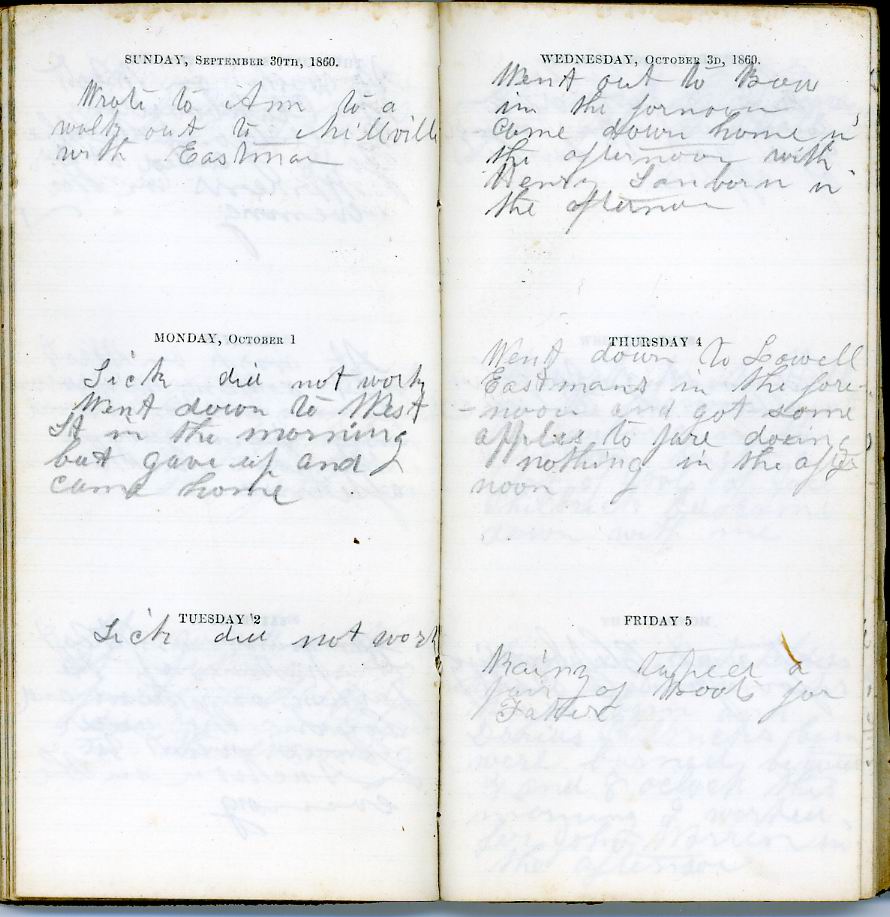 SUNDAY, SEPTEMBER 30TH, 1860.
Wrote to Ann to a
walk out to Millville
with Eastman
MONDAY, OCTOBER 1
Sick did not work
Went down to West
St in the morning
but gave up and I
came home
TUESDAY 2
Sick did not work
WEDNESDAY, OCTOBER 3D, 1860.
Went out to Bow
in the fornoon
Came down home in
the afternoon with
Henry Sanborn in
the afternoon
THURSDAY 4
Went down to Lowell
Eastmans in the fore-
-noon and got some
apples to pare doeing
nothing in the after
noon
FRIDAY 5
Rainy taped a
pair of Boots for
Father